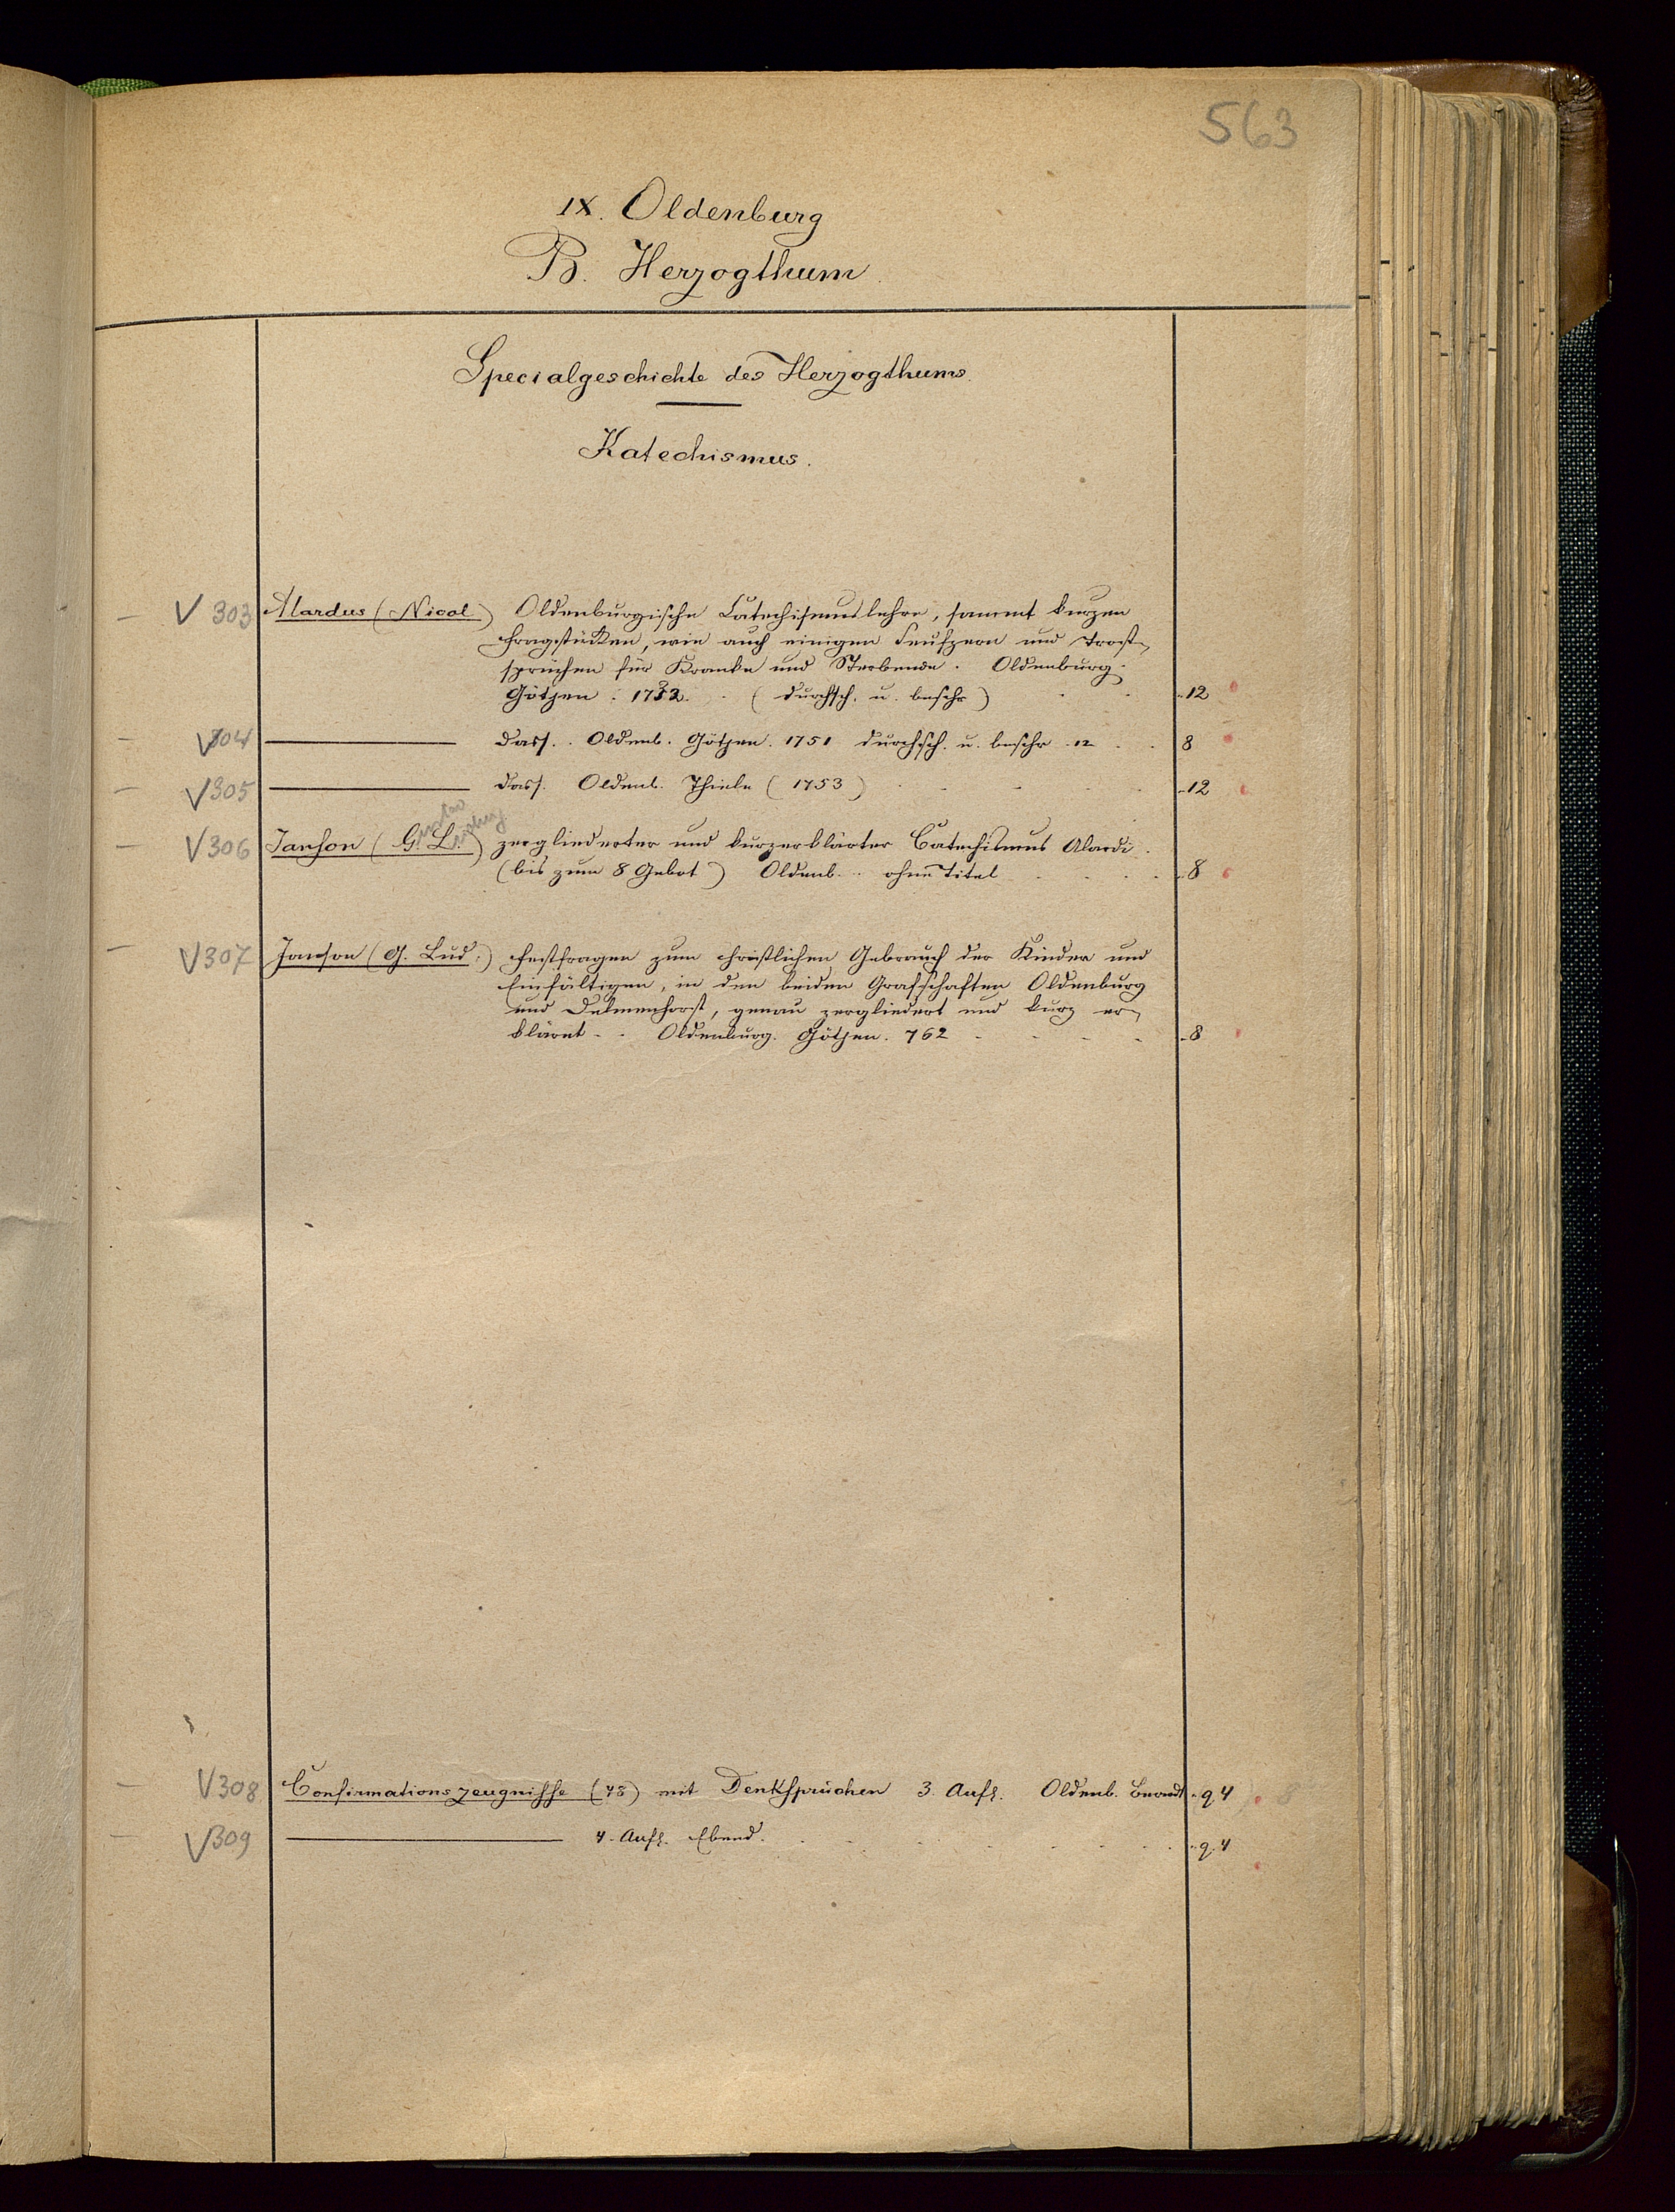 563
IX. Oldenburg
B. Herzogthum
Specialgeschichte des Herzogthums.
Katechismus.
V 303 Alardus (Nicol.) Oldenburgische Catechismuslehre, sammt kurzen
Fragstücken, wie auch einigen Seufzern und Trost-
sprüchen für Kranke und Sterbende. Oldenburg.
Götjen. 1732. (durchsch. u. beschr) 12
V 304 dass. Oldenb. Götjen. 1751 durchsch. u. beschr. 12 8
V 305 dass. Oldenb. Thiele (1753) 12
V 306 Janson (G. L.) zergliederter und kurzerklärter Catechismus Alardi.
(bis zum 8 Gebot) Oldenb. ohne Titel 8
V 307 Janson (G. Lud.) Festfragen zum christlichen Gebrauch der Kinder und
Einfältigen, in den beiden Grafschaften Oldenburg
und Delmenhorst, genau zergliedert und kurz er-
klärt Oldenburg. Götjen. 762 8
V 308 Confirmationszeugnisse (78) mit Denksprüchen 3. Aufl. Oldenb. Brandt q. 4 8
V 309 4. Aufl. Ebend. q. 4